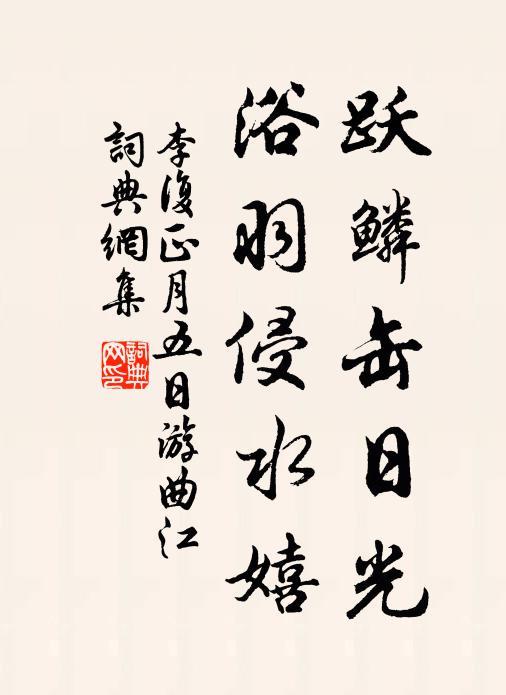 跃鳞缶日光
浴羽侵水嬉
李復正月五日游曲江
詞典網集
詞典
网印